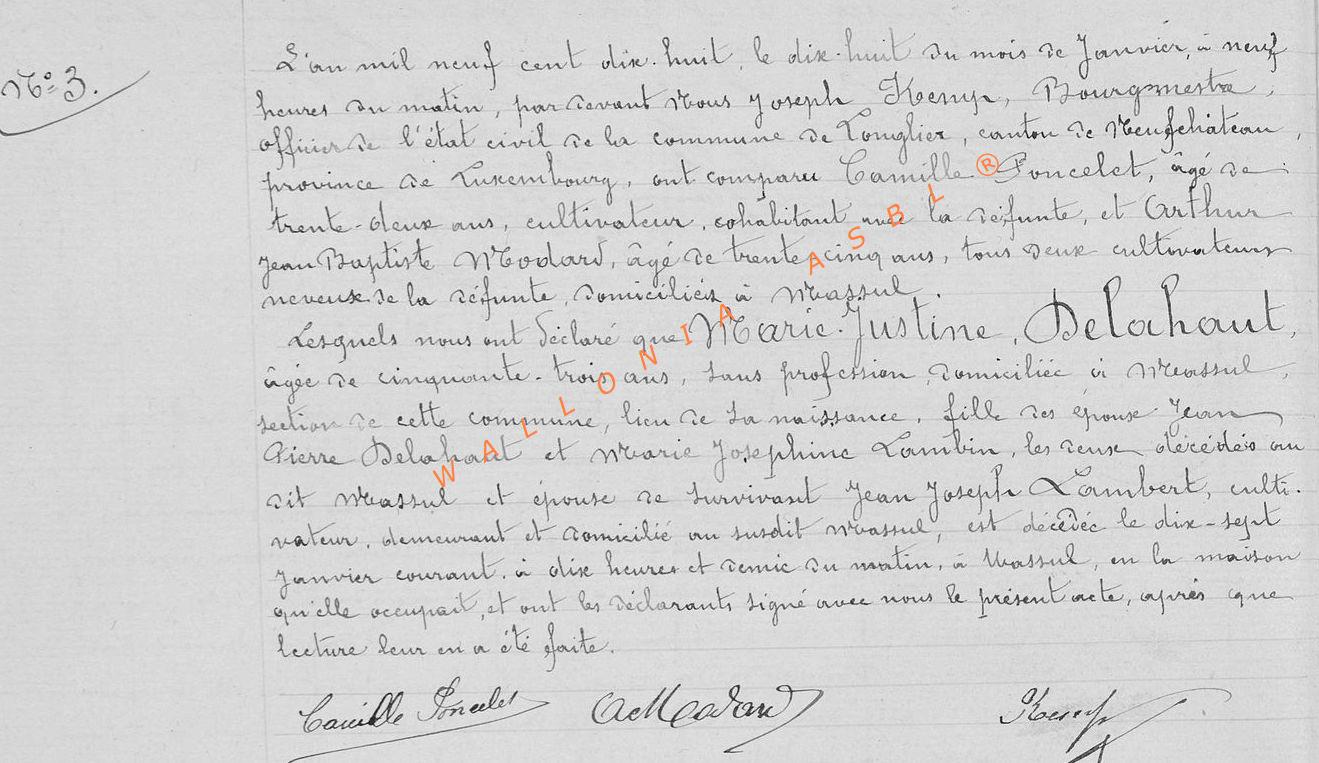 N° 3.
L'an mil neuf cent dix-huit, le dix-huit du mois de Janvier, à neuf
heures du matin, par devant Nous Joseph Kenys, Bourgmestre,
officier de l'état civil de la commune de Longlier, canton de Neufchâteau,
province de Luxembourg, ont comparu Camille Poncelet, âgé de
trente-deux ans, cultivateur, cohabitant avec la défunte, et Arthur
Jean Baptiste Modard, âgé de trente cinq ans, tous deux cultivateurs
neveux de la défunte, domiciliés à Massul.
Lesquels nous ont déclaré que Marie-Justine, Delahaut,
âgée de cinquante-trois ans, sans profession, domiciliée à Massul,
section de cette commune, lieu de sa naissance, fille des époux Jean
Pierre Delahaut et Marie Josephine Lambin, les deux décédés au
dit Massul et épouse de survivant Jean Joseph Lambert, culti-
vateur, demeurant et domicilié au susdit Massul, est décédée le dix-sept
Janvier courant, à dix heures et demie du matin, à Massul, en la maison
qu'elle occupait, et ont les déclarants signé avec nous le présent acte, après que
lecture leur en a été faite.
Camille Poncelet AModard
WALLONIA ASBL ®